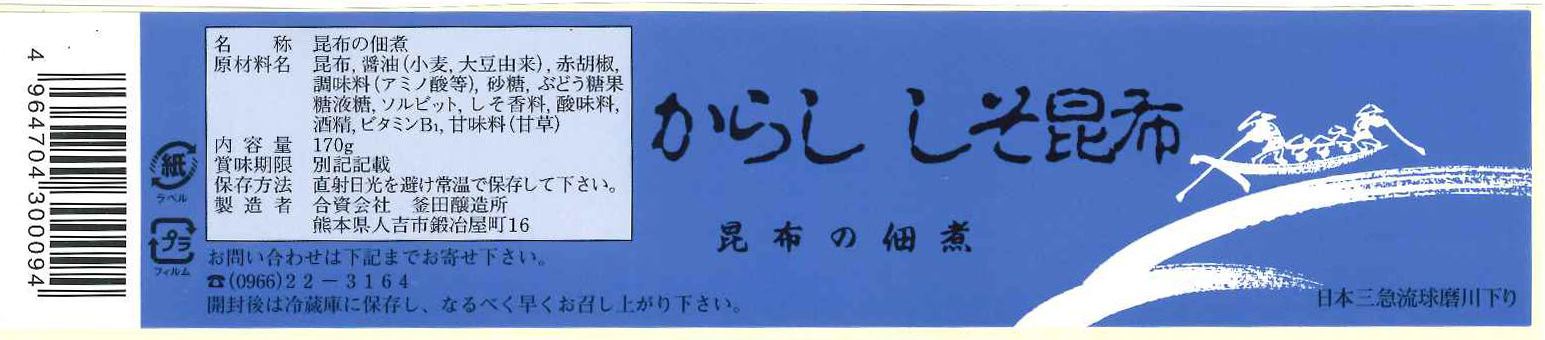 4 964704 300094
名称 昆布の佃煮
原材料名 昆布, 醤油(小麦, 大豆由来), 赤胡椒,
調味料(アミノ酸等), 砂糖, ぶどう糖果
糖液糖, ソルビット, しそ香料, 酸味料,
酒精, ビタミンB₁, 甘味料(甘草)
内容量 170g
賞味期限 別記記載
保存方法 直射日光を避け常温で保存して下さい。
製造者 合資会社 釜田醸造所
熊本県人吉市鍛冶屋町16
紙
ラベル
プラ
フィルム
お問い合わせは下記までお寄せ下さい。
☎(0966)22-3164
開封後は冷蔵庫に保存し、なるべく早くお召し上がり下さい。
からし しそ昆布
昆布の佃煮
日本三急流球磨川下り